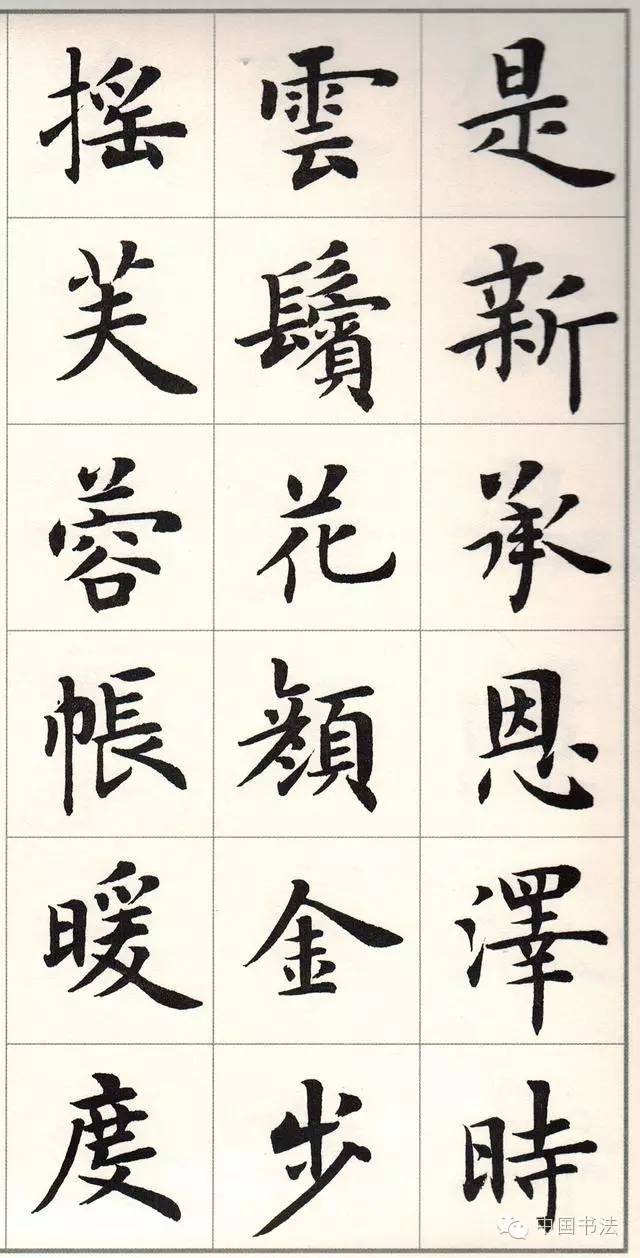 是新承恩澤時
雲鬢花顏金步
搖芙蓉帳暖度
中国书法